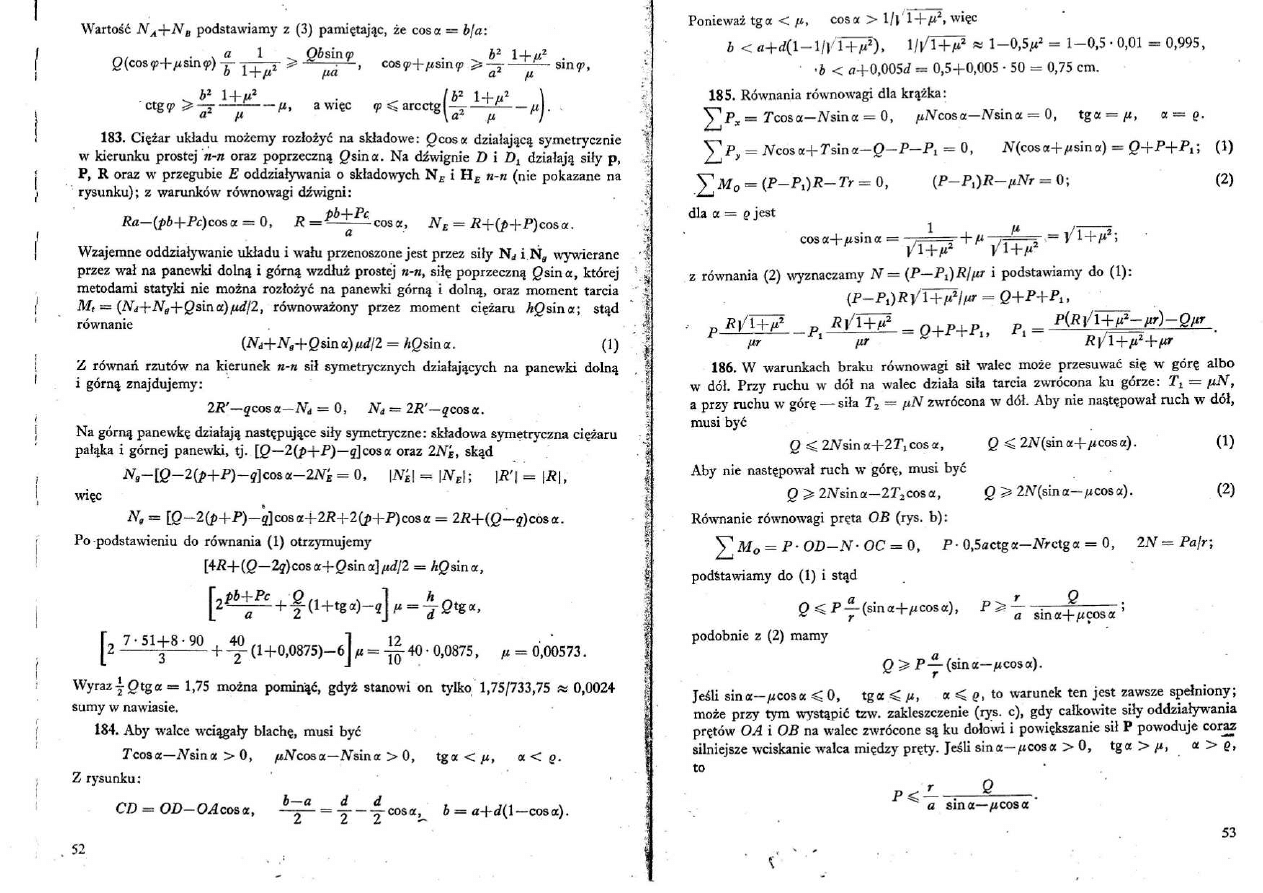 Wartość N_A+N_B podstawiamy z (3) pamiętając, że cos α = b/a:
Q(cos φ+μ sin φ) a/b 1/(1+μ²) ⩾ Qb sin φ/μa, cos φ+μ sin φ ⩾ b²/a² (1+μ²)/μ sin φ,
ctg φ ⩾ b²/a² (1+μ²)/μ − μ, a więc φ ⩽ arcctg(b²/a² (1+μ²)/μ − μ).
183. Ciężar układu możemy rozłożyć na składowe: Q cos α działającą symetrycznie
w kierunku prostej n-n oraz poprzeczną Q sin α. Na dźwignie D i D₁ działają siły p,
P, R oraz w przegubie E oddziaływania o składowych N_E i H_E n-n (nie pokazane na
rysunku); z warunków równowagi dźwigni:
Ra−(pb+Pc)cos α = 0, R = (pb+Pc)/a cos α, N_E = R+(p+P)cos α.
Wzajemne oddziaływanie układu i wału przenoszone jest przez siły N_d i N_g wywierane
przez wał na panewki dolną i górną wzdłuż prostej n-n, siłę poprzeczną Q sin α, której
metodami statyki nie można rozłożyć na panewki górną i dolną, oraz moment tarcia
M_t = (N_d+N_g+Q sin α)μd/2, równoważony przez moment ciężaru hQ sin α; stąd
równanie
(N_d+N_g+Q sin α)μd/2 = hQ sin α. (1)
Z równań rzutów na kierunek n-n sił symetrycznych działających na panewki dolną
i górną znajdujemy:
2R′−q cos α−N_d = 0, N_d = 2R′−q cos α.
Na górną panewkę działają następujące siły symetryczne: składowa symetryczna ciężaru
pałąka i górnej panewki, tj. [Q−2(p+P)−q]cos α oraz 2N′_E, skąd
N_g−[Q−2(p+P)−q]cos α−2N′_E = 0, |N′_E| = |N_E|; |R′| = |R|,
więc
N_g = [Q−2(p+P)−q]cos α+2R+2(p+P)cos α = 2R+(Q−q)cos α.
Po podstawieniu do równania (1) otrzymujemy
[4R+(Q−2q)cos α+Q sin α]μd/2 = hQ sin α,
[2 (pb+Pc)/a + Q/2 (1+tg α)−q] μ = h/d Q tg α,
[2 (7·51+8·90)/3 + 40/2 (1+0,0875)−6] μ = 12/10 40·0,0875, μ = 0,00573.
Wyraz ½ Q tg α = 1,75 można pominąć, gdyż stanowi on tylko 1,75/733,75 ≈ 0,0024
sumy w nawiasie.
184. Aby walce wciągały blachę, musi być
T cos α−N sin α > 0, μN cos α−N sin α > 0, tg α < μ, α < ϱ.
Z rysunku:
CD = OD−OA cos α, (b−a)/2 = d/2 − d/2 cos α, b = a+d(1−cos α).
52
Ponieważ tg α < μ, cos α > 1/√(1+μ²), więc
b < a+d(1−1/√(1+μ²)), 1/√(1+μ²) ≈ 1−0,5μ² = 1−0,5·0,01 = 0,995,
b < a+0,005d = 0,5+0,005·50 = 0,75 cm.
185. Równania równowagi dla krążka:
∑P_x = T cos α−N sin α = 0, μN cos α−N sin α = 0, tg α = μ, α = ϱ.
∑P_y = N cos α+T sin α−Q−P−P₁ = 0, N(cos α+μ sin α) = Q+P+P₁; (1)
∑M_O = (P−P₁)R−Tr = 0, (P−P₁)R−μNr = 0; (2)
dla α = ϱ jest
cos α+μ sin α = 1/√(1+μ²) + μ μ/√(1+μ²) = √(1+μ²);
z równania (2) wyznaczamy N = (P−P₁)R/μr i podstawiamy do (1):
(P−P₁)R√(1+μ²)/μr = Q+P+P₁,
P R√(1+μ²)/μr − P₁ R√(1+μ²)/μr = Q+P+P₁, P₁ = (P(R√(1+μ²)−μr)−Qμr)/(R√(1+μ²)+μr).
186. W warunkach braku równowagi sił walec może przesuwać się w górę albo
w dół. Przy ruchu w dół na walec działa siła tarcia zwrócona ku górze: T₁ = μN,
a przy ruchu w górę — siła T₂ = μN zwrócona w dół. Aby nie następował ruch w dół,
musi być
Q ⩽ 2N sin α+2T₁ cos α, Q ⩽ 2N(sin α+μ cos α). (1)
Aby nie następował ruch w górę, musi być
Q ⩾ 2N sin α−2T₂ cos α, Q ⩾ 2N(sin α−μ cos α). (2)
Równanie równowagi pręta OB (rys. b):
∑M_O = P·OD−N·OC = 0, P·0,5a ctg α−Nr ctg α = 0, 2N = Pa/r;
podstawiamy do (1) i stąd
Q ⩽ P a/r (sin α+μ cos α), P ⩾ r/a Q/(sin α+μ cos α);
podobnie z (2) mamy
Q ⩾ P a/r (sin α−μ cos α).
Jeśli sin α−μ cos α ⩽ 0, tg α ⩽ μ, α ⩽ ϱ, to warunek ten jest zawsze spełniony;
może przy tym wystąpić tzw. zakleszczenie (rys. c), gdy całkowite siły oddziaływania
prętów OA i OB na walec zwrócone są ku dołowi i powiększanie sił P powoduje coraz
silniejsze wciskanie walca między pręty. Jeśli sin α−μ cos α > 0, tg α > μ, α > ϱ,
to
P ⩽ r/a Q/(sin α−μ cos α).
53